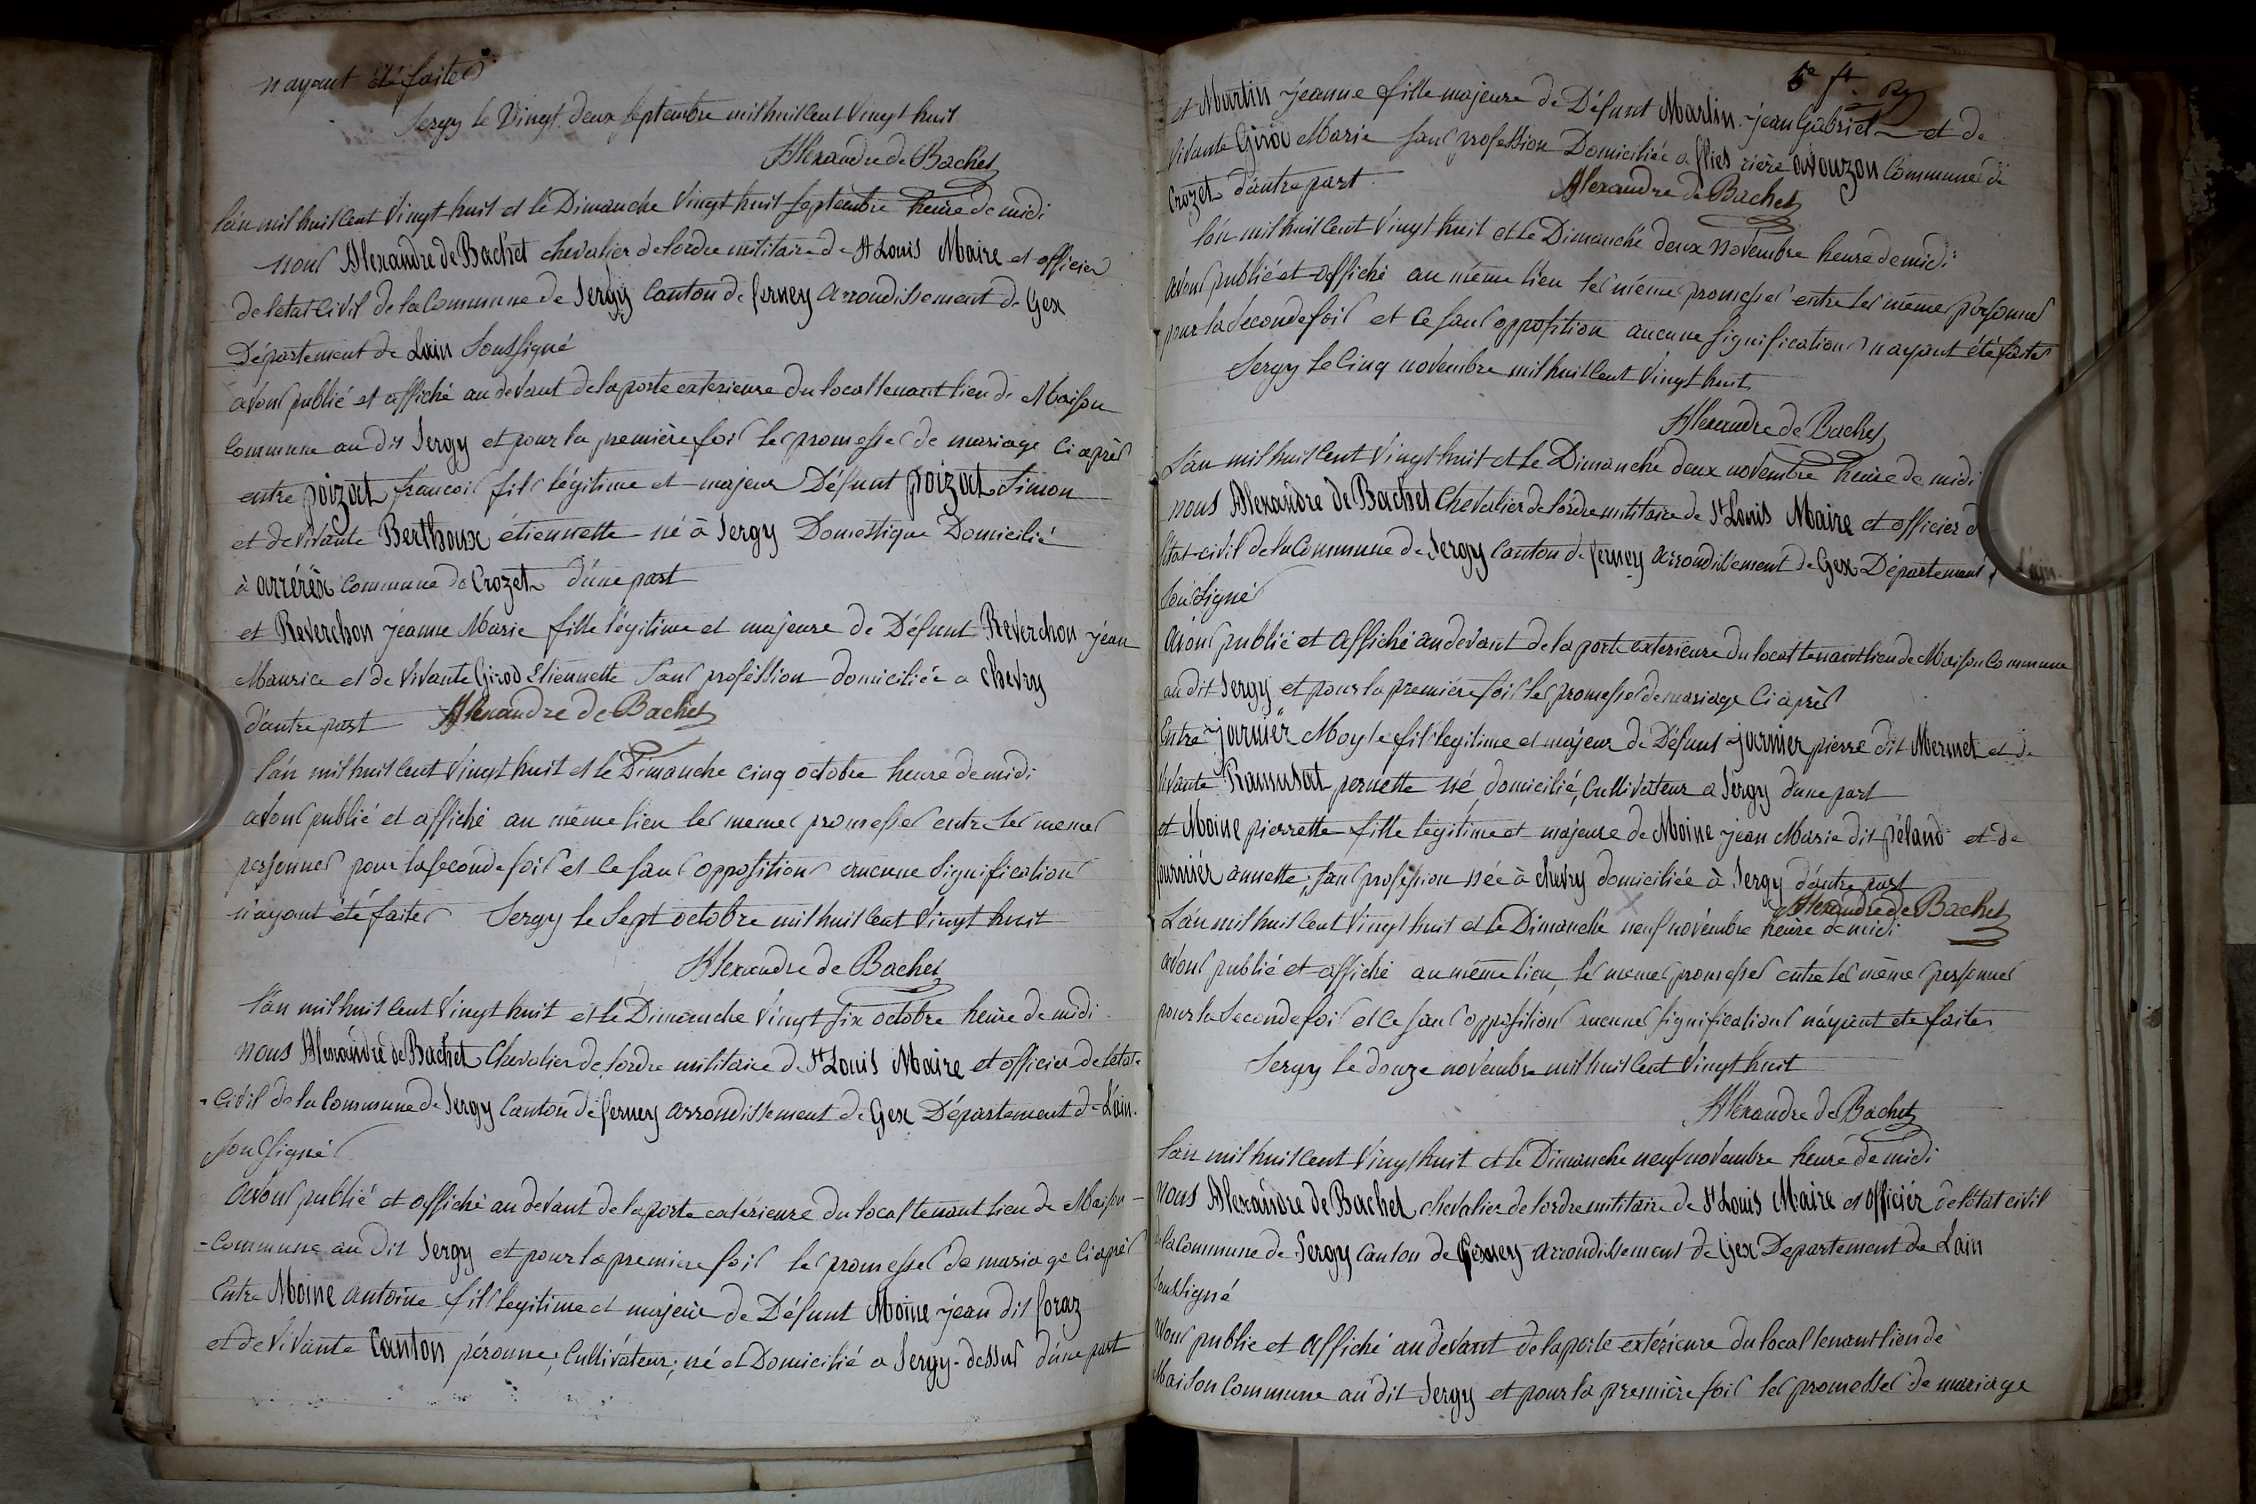 nayant été faites
Sergy le Vingt deux Septembre mil huit cent Vingt huit
Alexandre de Bachet
l'an mil huit cent Vingt huit et le Dimanche Vingt huit septembre heure de midi
nous Alexandre de Bachet chevalier de lordre militaire de St Louis Maire et officier
de letat civil de la Commune de Sergy Canton de ferney arrondissement de Gex
Département de Lain Soussigné
avons publié et affiché au devant de la porte exterieure du local tenant lieu de Maison
Commune au dit Sergy et pour la première fois les promesses de mariage Ci après
entre poizat francois fils légitime et majeur Défunt poizat Simon
et de vivante Berthoux étiennette né à Sergy Domestique Domicilié
à arrérèx commune de Crozet d'une part
et Reverchon jeanne Marie fille légitime et majeure de Défunt Reverchon jean
Maurice et de vivante Girod Etiennette Sans profession domiciliée a chevry
d'autre part Alexandre de Bachet
l'an mil huit cent Vingt huit et le Dimanche cinq octobre heure de midi
avons publié et affiché au même lieu les memes promesses entre les memes
personnes pour la seconde fois et ce sans oppositions aucune significations
n'ayant été faites Sergy le Sept octobre mil huit cent Vingt huit
Alexandre de Bachet
l'an mil huit cent Vingt huit et le Dimanche Vingt six octobre heure de midi
nous Alexandre de Bachet Chevalier de lordre militaire de St Louis Maire et officier de letat
civil de la Commune de Sergy Canton de ferney arrondissement de Gex Département de L'ain.
soussigné
avons publié et affiché au devant de la porte extérieure du local tenant lieu de Maison
-Commune au dit Sergy et pour la premiere fois les promesses de mariage Ci après
Entre Moine antoine fils legitime et majeur de Défunt Moine jean dit foraz
et de Vivante Canton péronne, Cultivateur, né et Domicilié a Sergy-dessus d'une part
et Martin jeanne fille majeure de Défunt Martin jean Gabriel et de
vivante Girod Marie sans profession Domiciliée a flies rière avouzon Commune de
Crozet d'autre part. Alexandre de Bachet
l'an mil huit cent Vingt huit et le Dimanche deux Novembre heure de midi
avons publié et affiché au même lieu les mêmes promesses entre les mêmes personnes
pour la Seconde fois et ce sans opposition aucune significations nayant été faites
Sergy le Cinq novembre mil huit cent Vingt huit
Alexandre de Bachet
L'an mil huit cent Vingt huit et le Dimanche deux novembre heure de midi
nous Alexandre de Bachet Chevalier de lordre militaire de St Louis Maire et officier d
létat-civil de la Commune de Sergy Canton de ferney arrondissement de Gex Département L'ain.
soussigné
avons publié et affiché au devant de la porte exterieure du local tenant lieu de Maison Commune
au dit Sergy et pour la première fois les promesses de mariage Ci après
Entre jarnier Moyse fils legitime et majeur de Défunt jarnier pierre dit Mermet et de
vivante Ramusat pernette né domicilié, Cultivateur a Sergy d'une part
et Moine pierrette fille légitime et majeure de Moine jean Marie dit péland et de
fournier annette, sans profession née à chevry domiciliée à Sergy d'autre part
Alexandre de Bachet
L'an mil huit cent Vingt huit et le Dimanche neuf novembre heure de midi
avons publié et affiché au même lieu, les memes promesses entre les même personnes
pour la Seconde fois et ce sans opposition aucunes significations n'ayant ete faites
Sergy le douze novembre mil huit cent Vingt huit
Alexandre de Bachet
l'an mil huit cent Vingt huit et le Dimanche neuf novembre heure de midi
nous Alexandre de Bachet chevalier de lordre militaire de St Louis Maire et officier de létat civil
de la Commune de Sergy Canton de ferney arrondissement de Gex Departement de Lain
soussigné
avons publié et affiché au devant de la porte extérieure du local tenant lieu de
Maison Commune au dit Sergy et pour la première fois les promesses de mariage